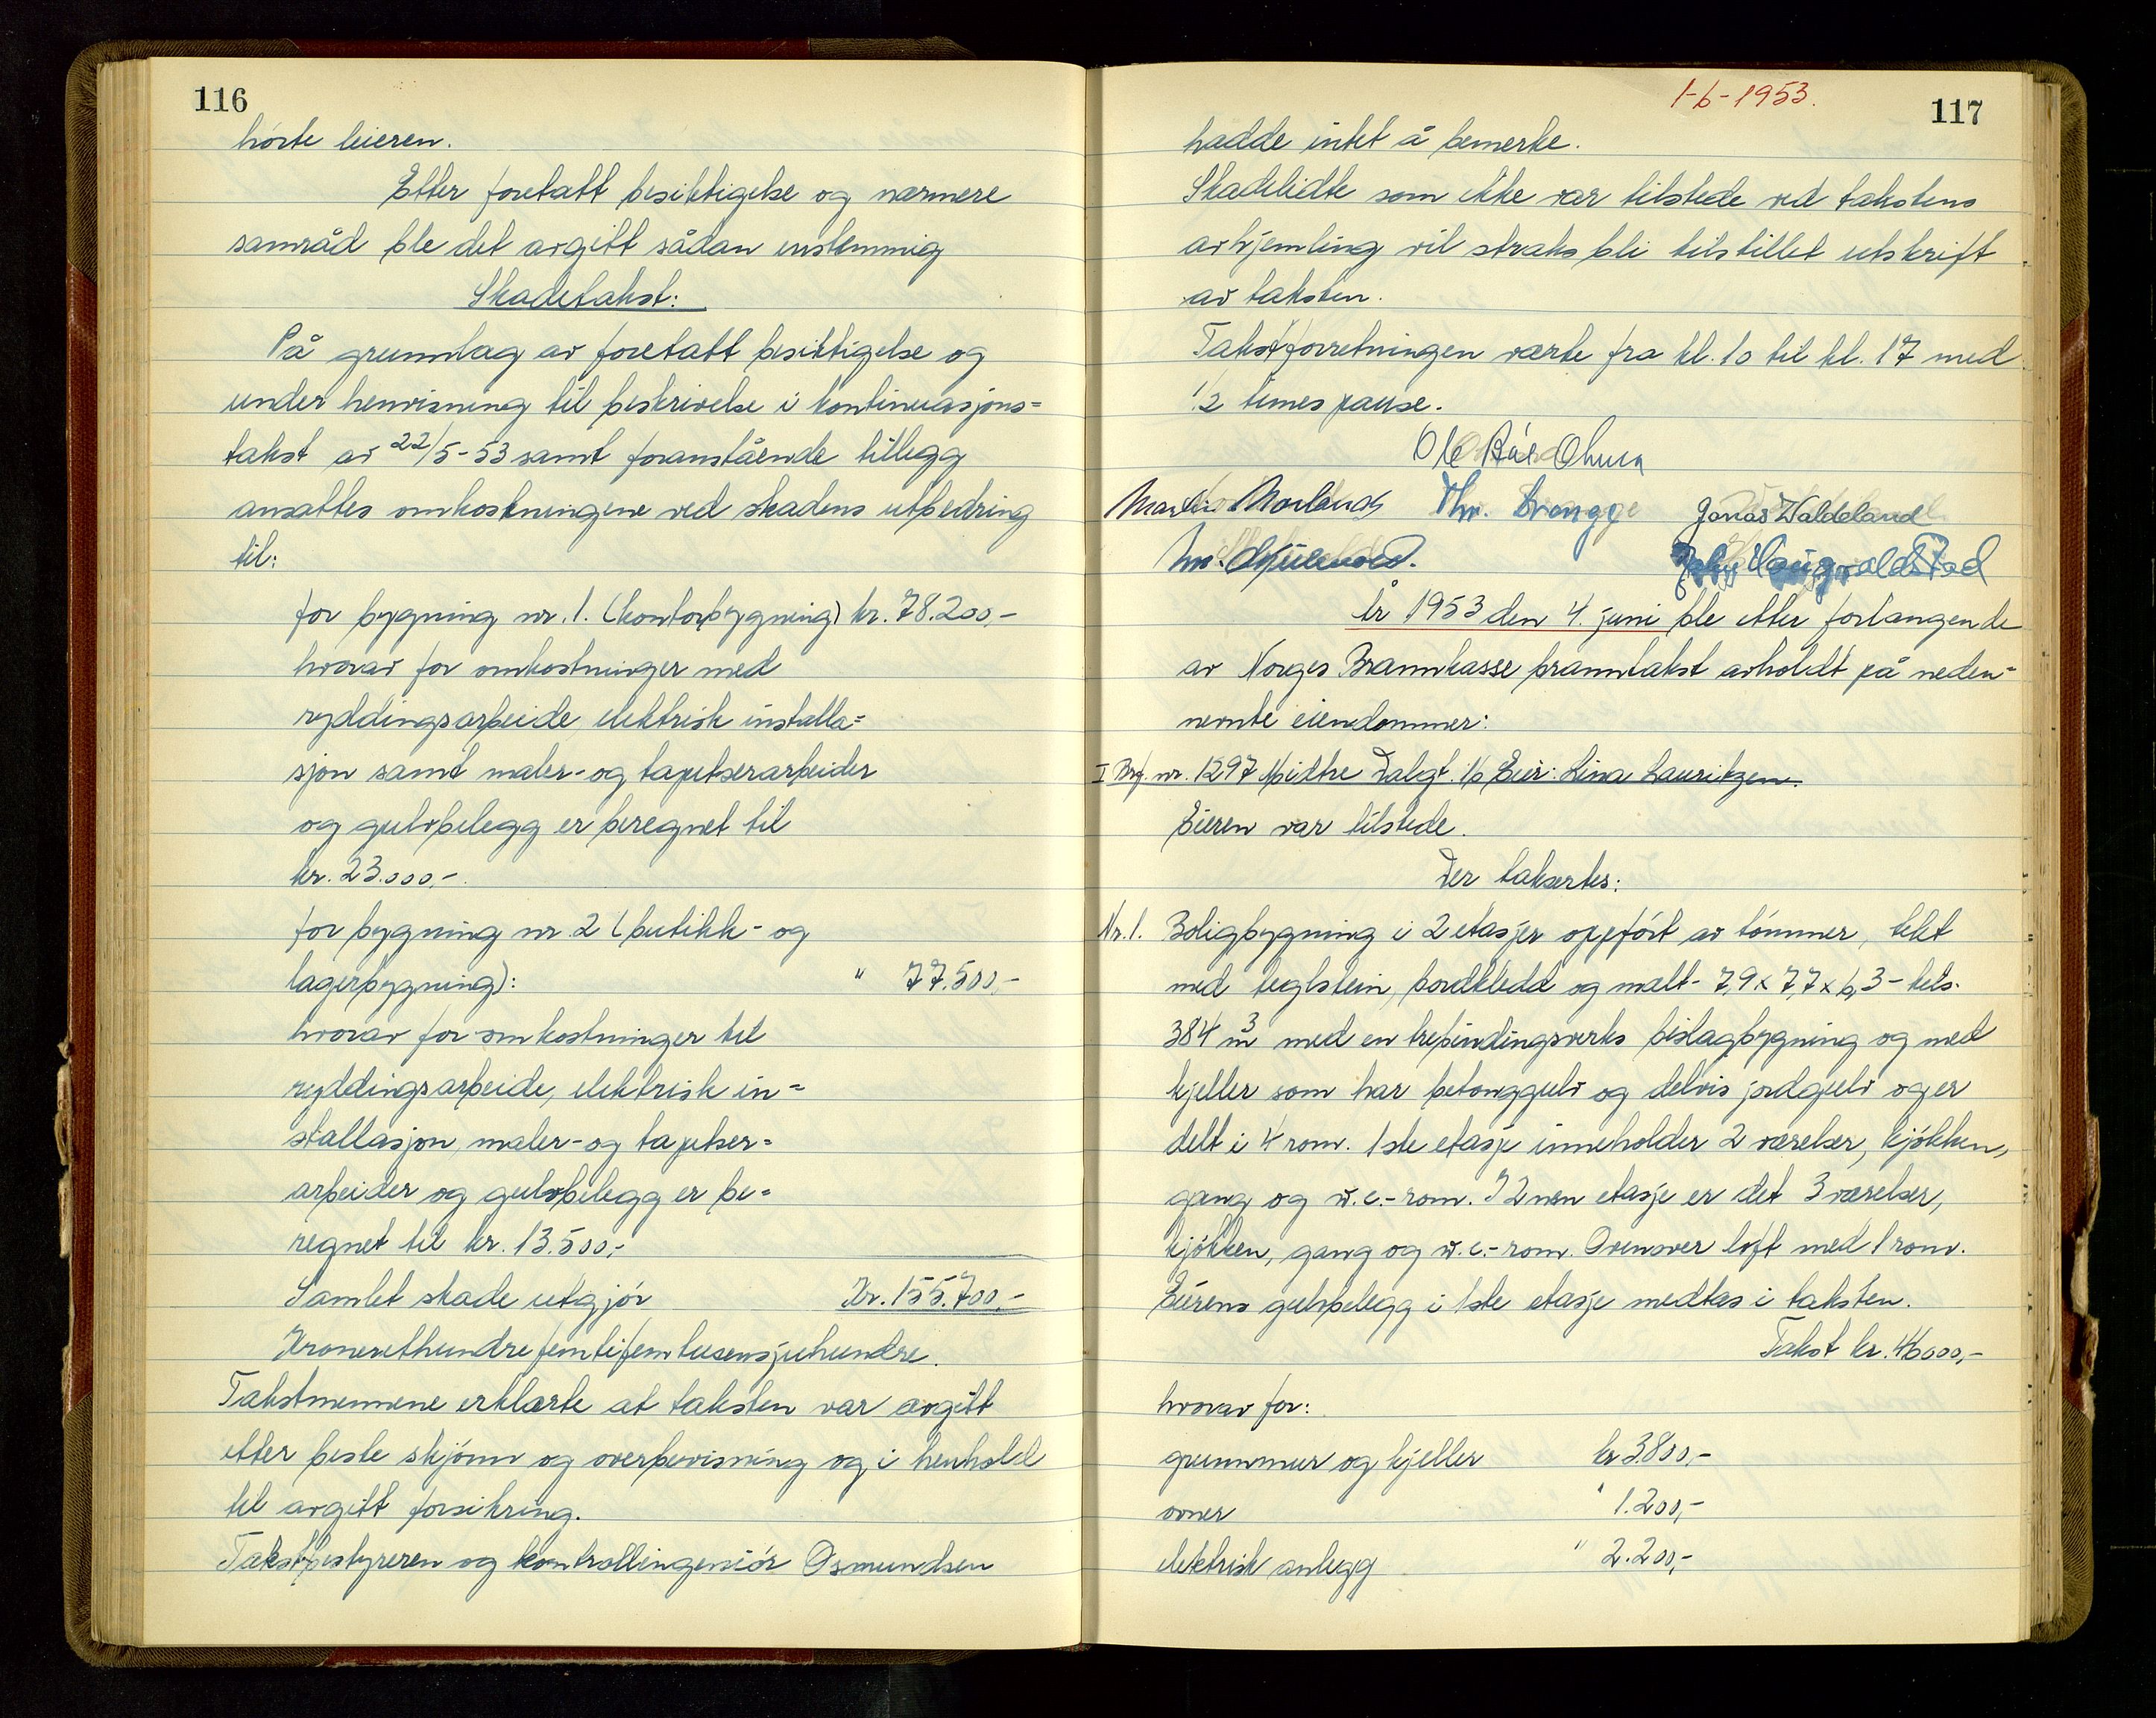 116
hørte leieren.
Etter foretatt besiktigelse og nærmere
samråd ble det avgitt sådan enstemmig
Skadetakst:
På grunnlag av foretatt besiktigelse og
under henvisning til beskrivelse i kontinuasjons=
takst av 22/5-53 samt foranstående tillegg
ansattes omkostningene ved skadens utbedring
til:
for bygning nr. 1. (kontorbygning) kr. 78.200,-
hvorav for omkostninger med
ryddingsarbeide, elektrisk installa=
sjon samt maler- og tapetserarbeider
og gulvbelegg er beregnet til
kr. 23.000,-.
for bygning nr. 2 (butikk- og
lagerbygning): " 77.500,-
hvorav for omkostninger til
ryddingsarbeide, elektrisk in=
stallasjon, maler- og tapetser=
arbeider og gulvbelegg er be=
regnet til kr. 13.500,-
Samlet skade utgjør Kr. 155.700.-
Kronerethundrefemtifemtusensjuhundre.
Takstmennene erklærte at taksten var avgitt
etter beste skjønn og overbevisning og i henhold
til avgitt forsikring.
Takstbestyreren og kontrollingeniør Osmundsen
1-6-1953.
117
hadde intet å bemerke.
Skadelidte som ikke var tilstede ved takstens
avhjemling vil straks bli tilstillet utskrift
av taksten.
Takstforretningen varte fra kl. 10 til kl. 17 med
1/2 times pause.
Ole
Martin Morland Thr. Brongge Jonas Waldeland
År 1953 den 4. juni ble etter forlangende
av Norges Brannkasse branntakst avholdt på neden=
nevnte eiendommer:
I Brf. nr. 1297 Midtre Dalgt. 16 Eier: Lina Lauritzen.
Eieren var tilstede.
Der taksertes:
Nr. 1. Boligbygning i 2 etasjer oppført av tømmer, tekt
med teglstein, bordkledd og malt - 7,9 x 7,7 x 6,3 - tils.
384 m³ med en trebindingsverks bislagbygning og med
kjeller som har betonggulv og delvis jordgulv og er
delt i 4 rom. 1ste etasje inneholder 2 værelser, kjøkken,
gang og w.c.-rom. I 2nen etasje er det 3 værelser,
kjøkken, gang og w.c.-rom. Ovenover loft med 1 rom.
Eierens gulvbelegg i 1ste etasje medtas i taksten.
Takst kr. 46000,-
hvorav for:
grunnmur og kjeller kr 3.800,-
ovner " 1.200,-
elektrisk anlegg " 2.200,-